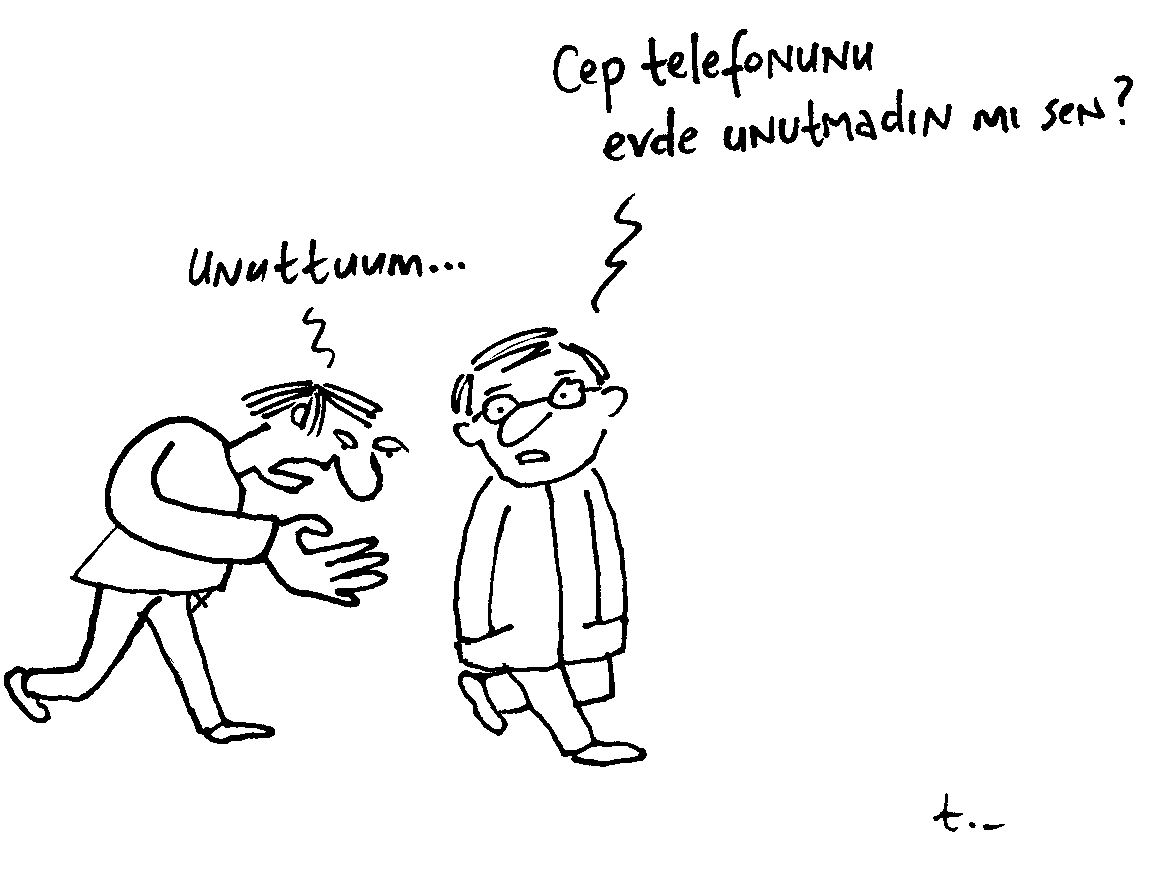 Cep telefonunu
evde unutmadın mı sen?
unuttuum...
t.-